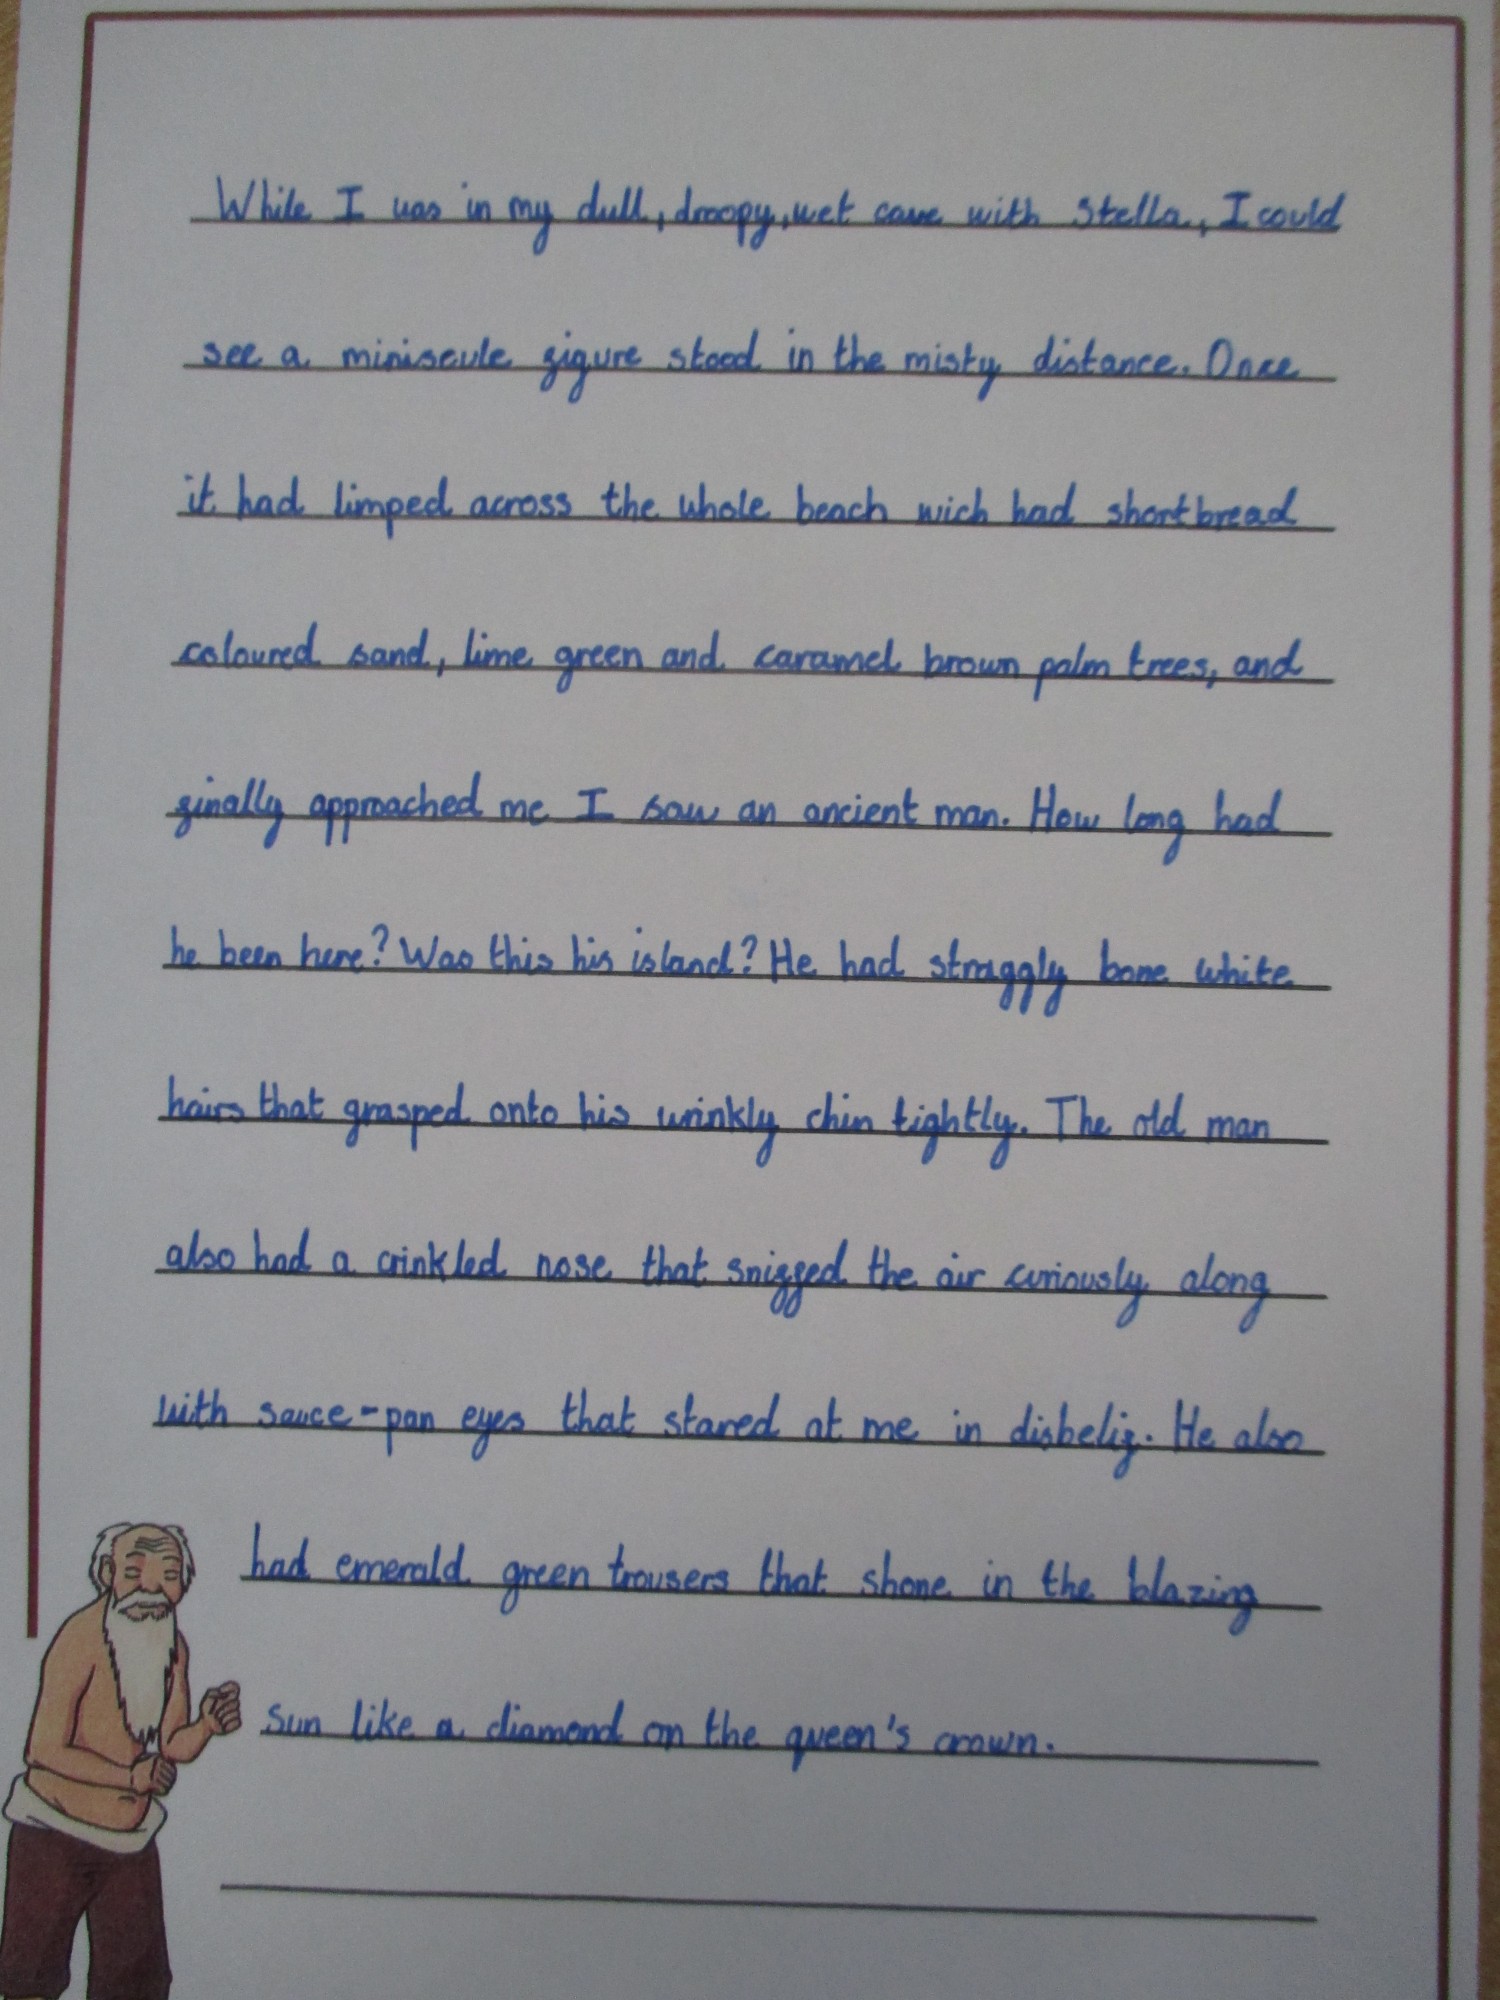 While I was in my dull, droopy, wet cave with Stella, I could
see a miniscule figure stood in the misty distance. Once
it had limped across the whole beach wich had shortbread
coloured sand, lime green and caramel brown palm trees, and
finally approached me I saw an ancient man. How long had
he been here? Was this his island? He had straggly bone white
hairs that grasped onto his wrinkly chin tightly. The old man
also had a crinkled nose that sniffed the air curiously along
with sauce-pan eyes that stared at me in disbelif. He also
had emerald green trousers that shone in the blazing
sun like a diamond on the queen's crown.